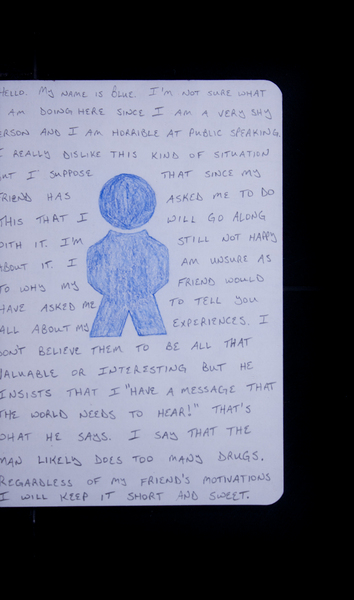 HELLO. MY NAME IS BLUE. I'M NOT SURE WHAT
I AM DOING HERE SINCE I AM A VERY SHY
PERSON AND I AM HORRIBLE AT PUBLIC SPEAKING.
I REALLY DISLIKE THIS KIND OF SITUATION
BUT I SUPPOSE THAT SINCE MY
FRIEND HAS ASKED ME TO DO
THIS THAT I WILL GO ALONG
WITH IT. I'M STILL NOT HAPPY
ABOUT IT. I AM UNSURE AS
TO WHY MY FRIEND WOULD
HAVE ASKED ME TO TELL YOU
ALL ABOUT MY EXPERIENCES. I
DON'T BELIEVE THEM TO BE ALL THAT
VALUABLE OR INTERESTING BUT HE
INSISTS THAT I "HAVE A MESSAGE THAT
THE WORLD NEEDS TO HEAR!" THAT'S
WHAT HE SAYS. I SAY THAT THE
MAN LIKELY DOES TOO MANY DRUGS.
REGARDLESS OF MY FRIEND'S MOTIVATIONS
I WILL KEEP IT SHORT AND SWEET.